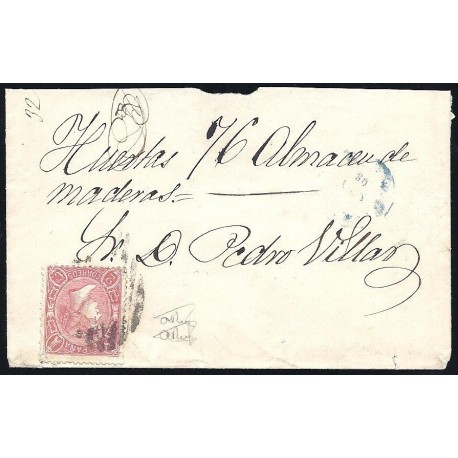 92
Huertas 76 Almacen de
maderas =
Sr. D. Pedro Villar
CORREOS
ESPAÑA